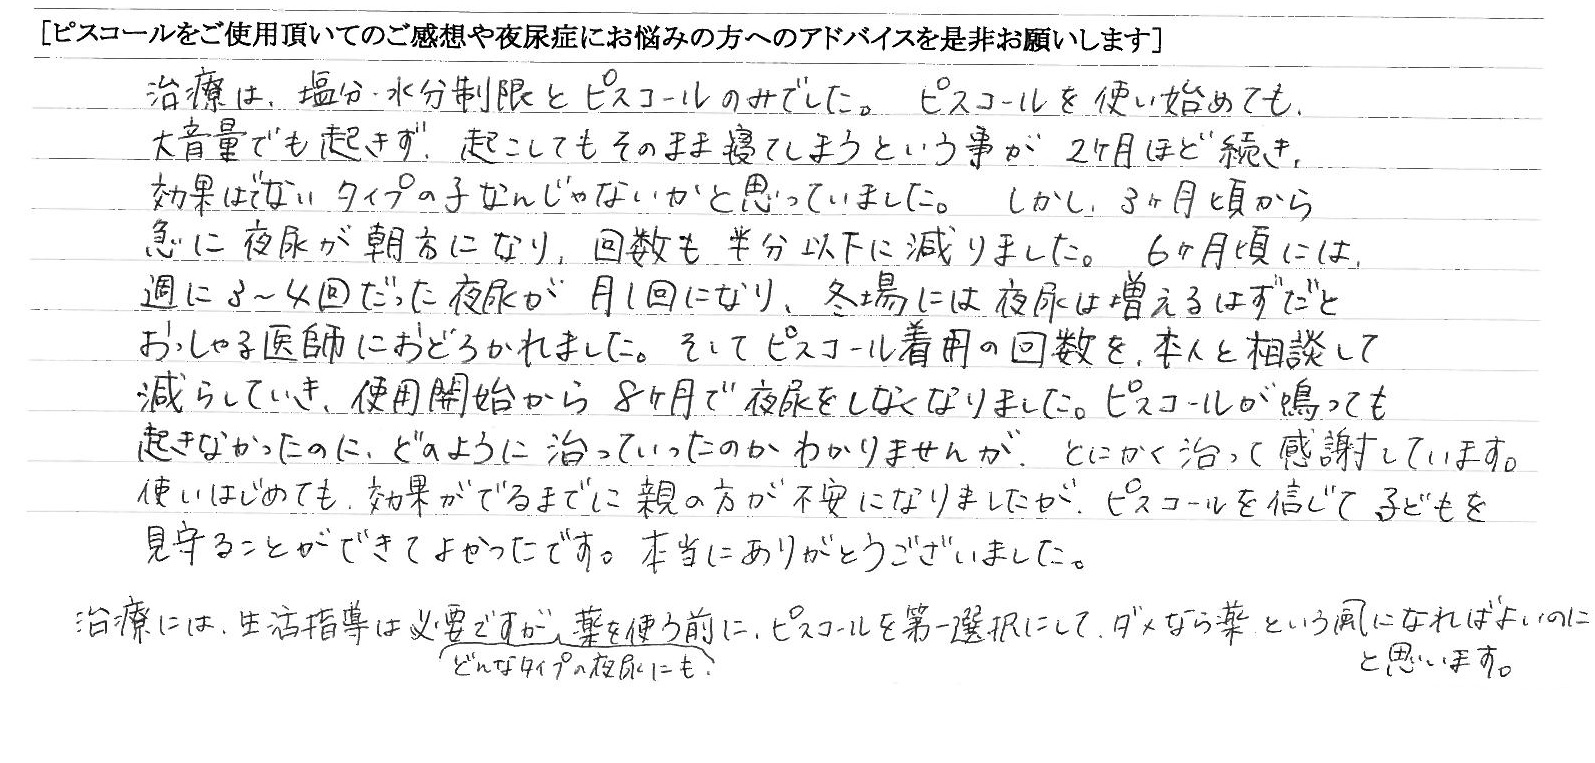 [ピスコールをご使用頂いてのご感想や夜尿症にお悩みの方へのアドバイスを是非お願いします]
治療は、塩分・水分制限とピスコールのみでした。 ピスコールを使い始めても、
大音量でも起きず、起こしてもそのまま寝てしまうという事が 2ケ月ほど続き、
効果はでない タイプの子なんじゃないかと思っていました。 しかし、3ヶ月頃から
急に 夜尿が 朝方になり、回数も 半分以下に減りました。 6ヶ月頃には、
週に3〜4回だった夜尿が 月1回になり、冬場には夜尿は増えるはずだと
おっしゃる医師におどろかれました。そしてピスコール着用の回数を、本人と相談して
減らしていき、使用開始から 8ヶ月で夜尿をしなくなりました。ピスコールが鳴っても
起きなかったのに、どのように治っていったのかわかりませんが、とにかく治って感謝しています。
使いはじめても、効果がでるまでに親の方が不安になりましたが、ピスコールを信じて子どもを
見守ることができてよかったです。本当にありがとうございました。
治療には、生活指導は必要ですが、薬を使う前に、ピスコールを第一選択にして、ダメなら薬という風になればよいのに
どんなタイプの夜尿にも、
と思います。